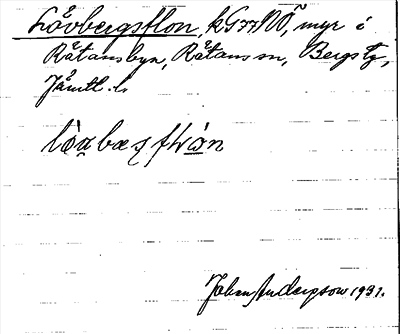 Lövbergsflon, kG77NÖ, myr i
Rätansbyn, Rätans sn, Bergs tg,
Jämtl. l.
Johan Anderpsow 1931.